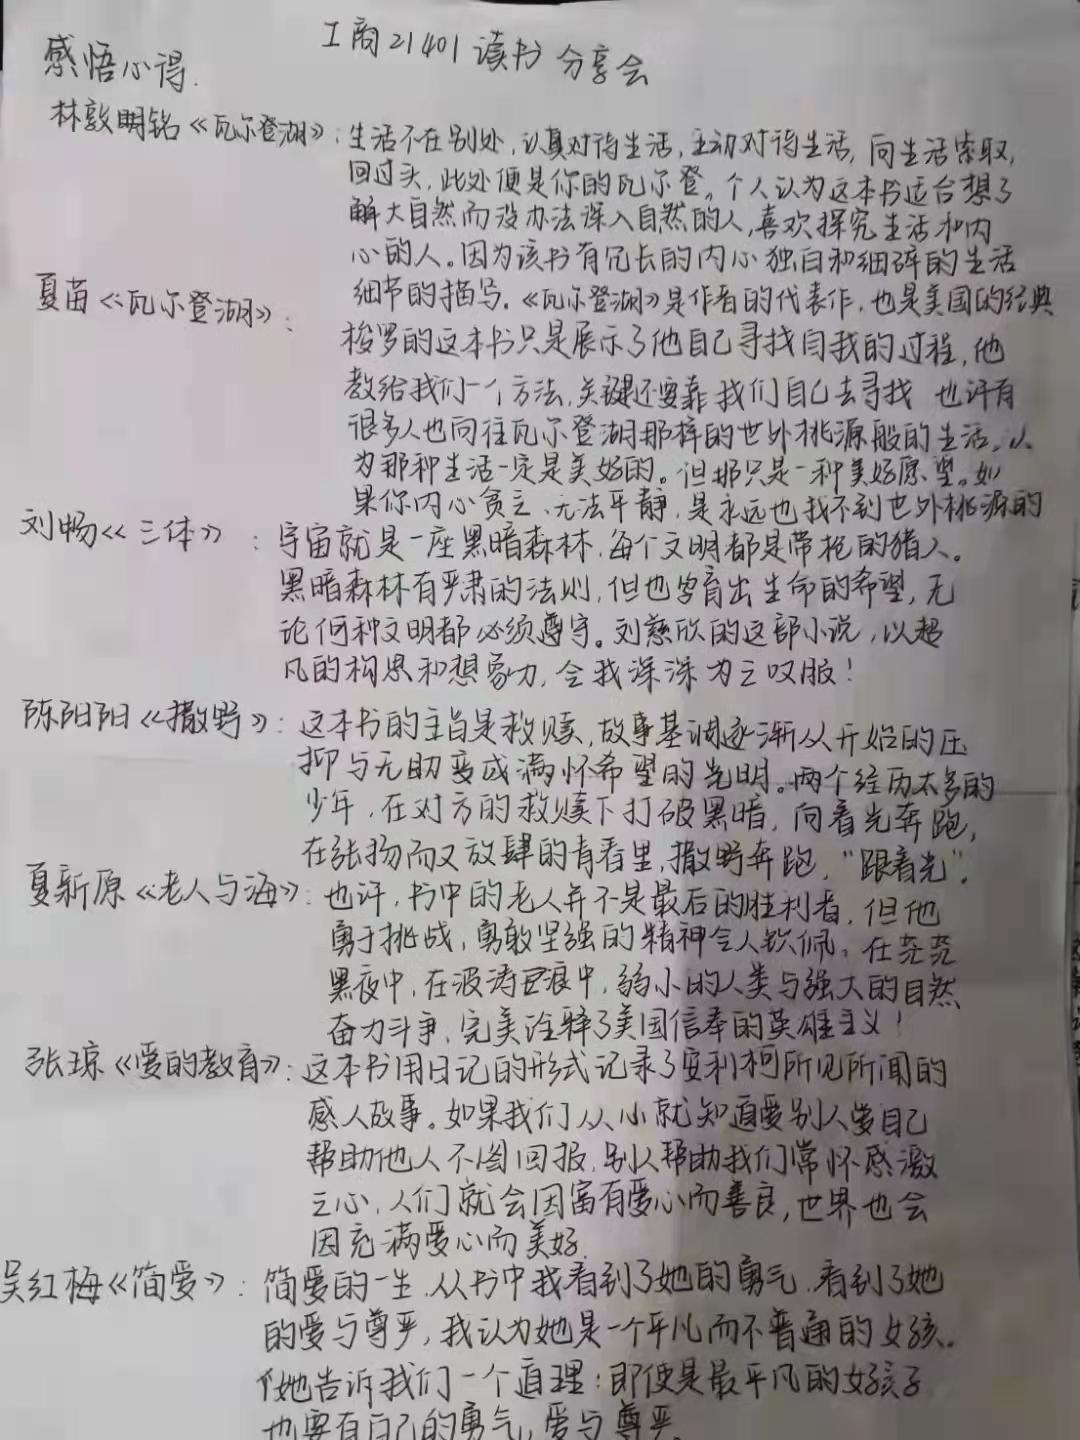 工商21401读书分享会
感悟心得.
林敦明铭《瓦尔登湖》:生活不在别处,认真对待生活,主动对待生活,向生活索取,
回过头,此处便是你的瓦尔登。个人认为这本书适合想了
解大自然而没办法深入自然的人,喜欢探究生活和内
心的人。因为该书有冗长的内心独白和细碎的生活
细节的描写.《瓦尔登湖》是作者的代表作,也是美国的经典
夏苗《瓦尔登湖》:
梭罗的这本书只是展示了他自己寻找自我的过程,他
教给我们一个方法,关键还要靠我们自己去寻找 也许有
很多人也向往瓦尔登湖那样的世外桃源般的生活。认
为那种生活一定是美好的。但那只是一种美好愿望。如
果你内心贫乏、无法平静,是永远也找不到世外桃源的
刘畅《三体》:宇宙就是一座黑暗森林,每个文明都是带枪的猎人。
黑暗森林有严肃的法则,但也孕育出生命的希望,无
论何种文明都必须尊守。刘慈欣的这部小说,以超
凡的构思和想象力,令我深深为之叹服!
陈阳阳《撒野》:这本书的主旨是救赎,故事基调逐渐从开始的压
抑与无助变成满怀希望的光明。两个经历太多的
少年,在对方的救赎下打破黑暗,向着光奔跑,
在张扬而又放肆的青春里,撒野奔跑,“跟着光”.
夏新原《老人与海》:也许,书中的老人并不是最后的胜利者,但他
勇于挑战,勇敢坚强的精神令人钦佩。在茫茫
黑夜中,在波涛巨浪中,弱小的人类与强大的自然
奋力斗争,完美诠释了美国信奉的英雄主义!
张琼《爱的教育》:这本书用日记的形式记录了安利柯所见所闻的
感人故事。如果我们从小就知道爱别人爱自己
帮助他人不图回报,别人帮助我们常怀感激
之心,人们就会因富有爱心而善良,世界也会
因充满爱心而美好.
吴红梅《简爱》:简爱的一生,从书中我看到了她的勇气,看到了她
的爱与尊严,我认为她是一个平凡而不普通的女孩.
她告诉我们一个道理:即使是最平凡的女孩子
也要有自己的勇气,爱与尊严